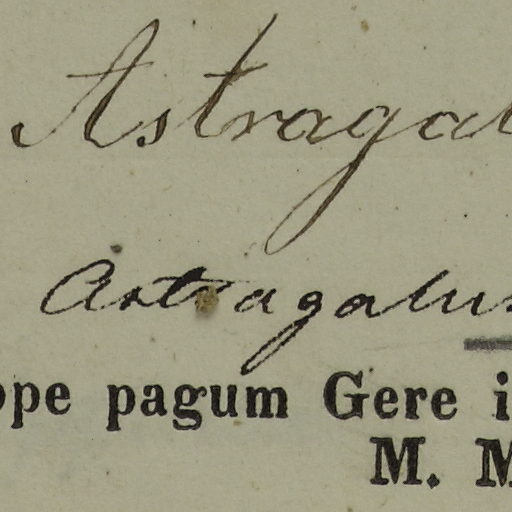 Astragal
Astragalus
ope pagum Gere i
M. M